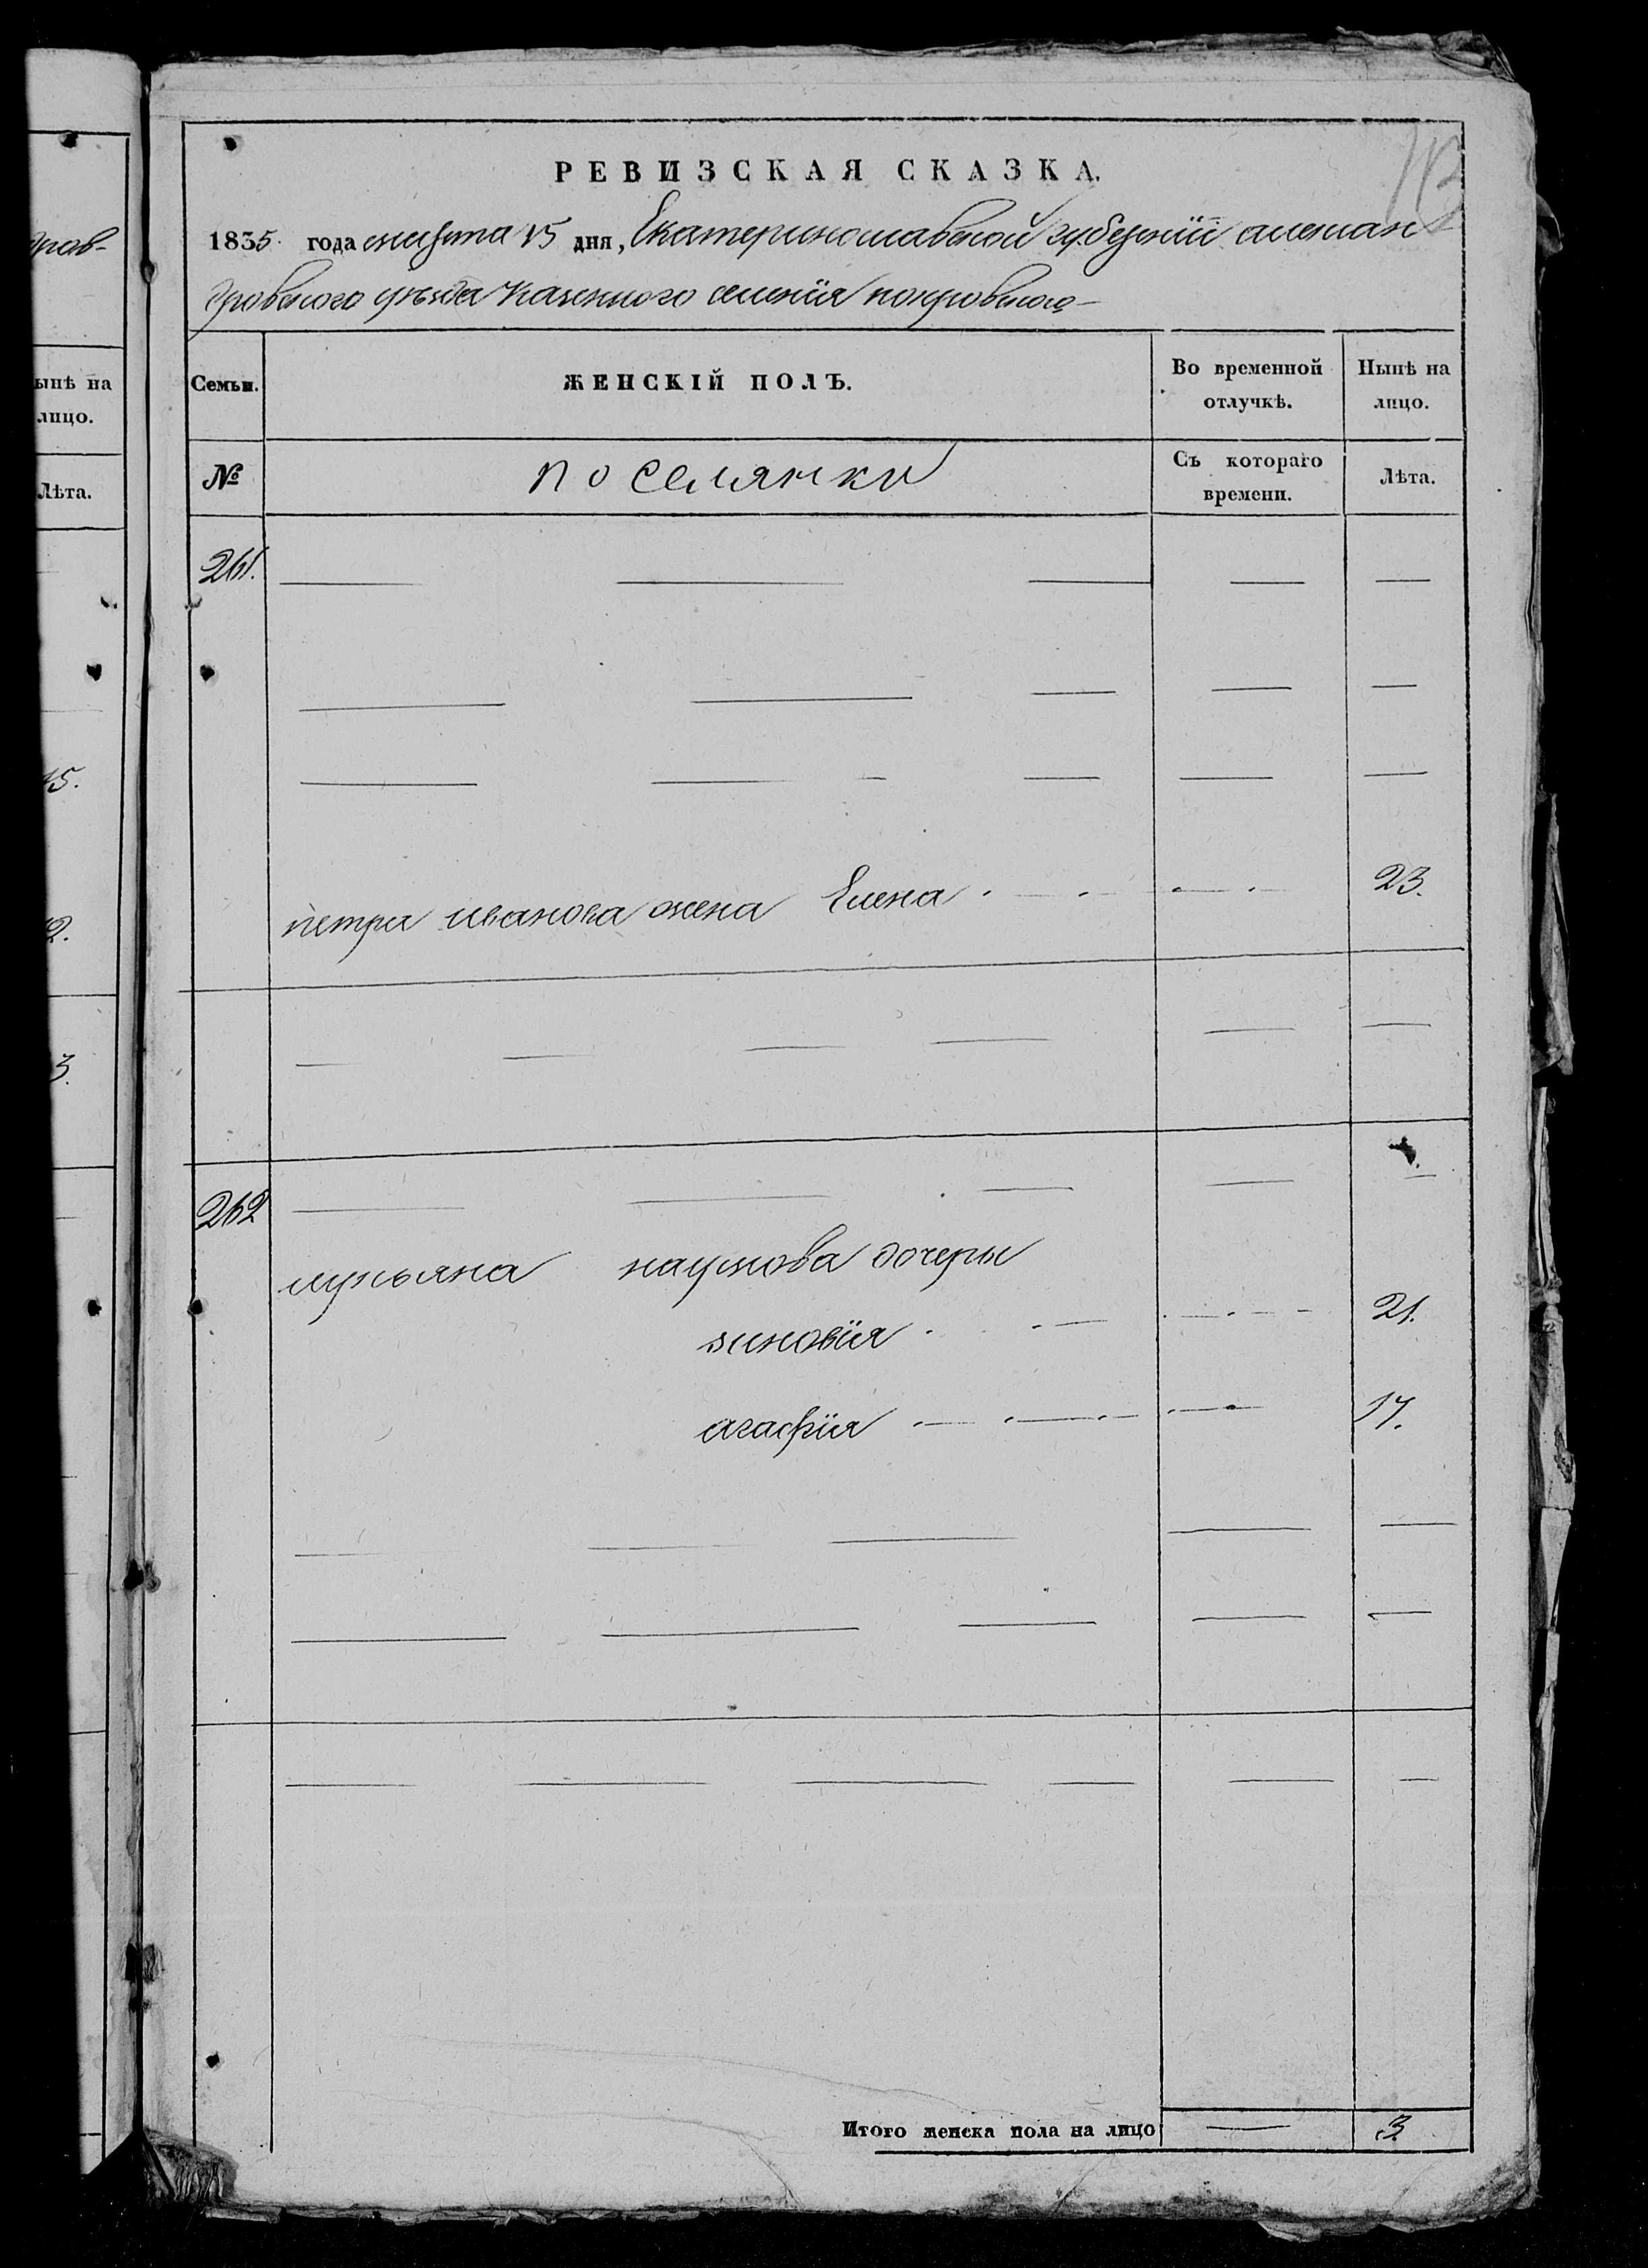 рав-
РЕВИЗСКАЯ СКАЗКА.
1835. года августа 15 дня, Екатеринославской губернїи алексан
дровского уѣзда Казенного селенїя покровского-
ынѣ на
лицо.
Лѣта.
Семьи.
ЖЕНСКІЙ ПОЛЪ.
Во временной
отлучкѣ.
Нынѣ на
лицо.
№
поселянки
Съ котораго
времени.
Лѣта.
261.
15.
2.
петра иванова жена Елена
23.
3.
262
лукьяна наумова дочеры
зиновїя
21.
агафїя
17.
Итого женска пола на лицо
3.